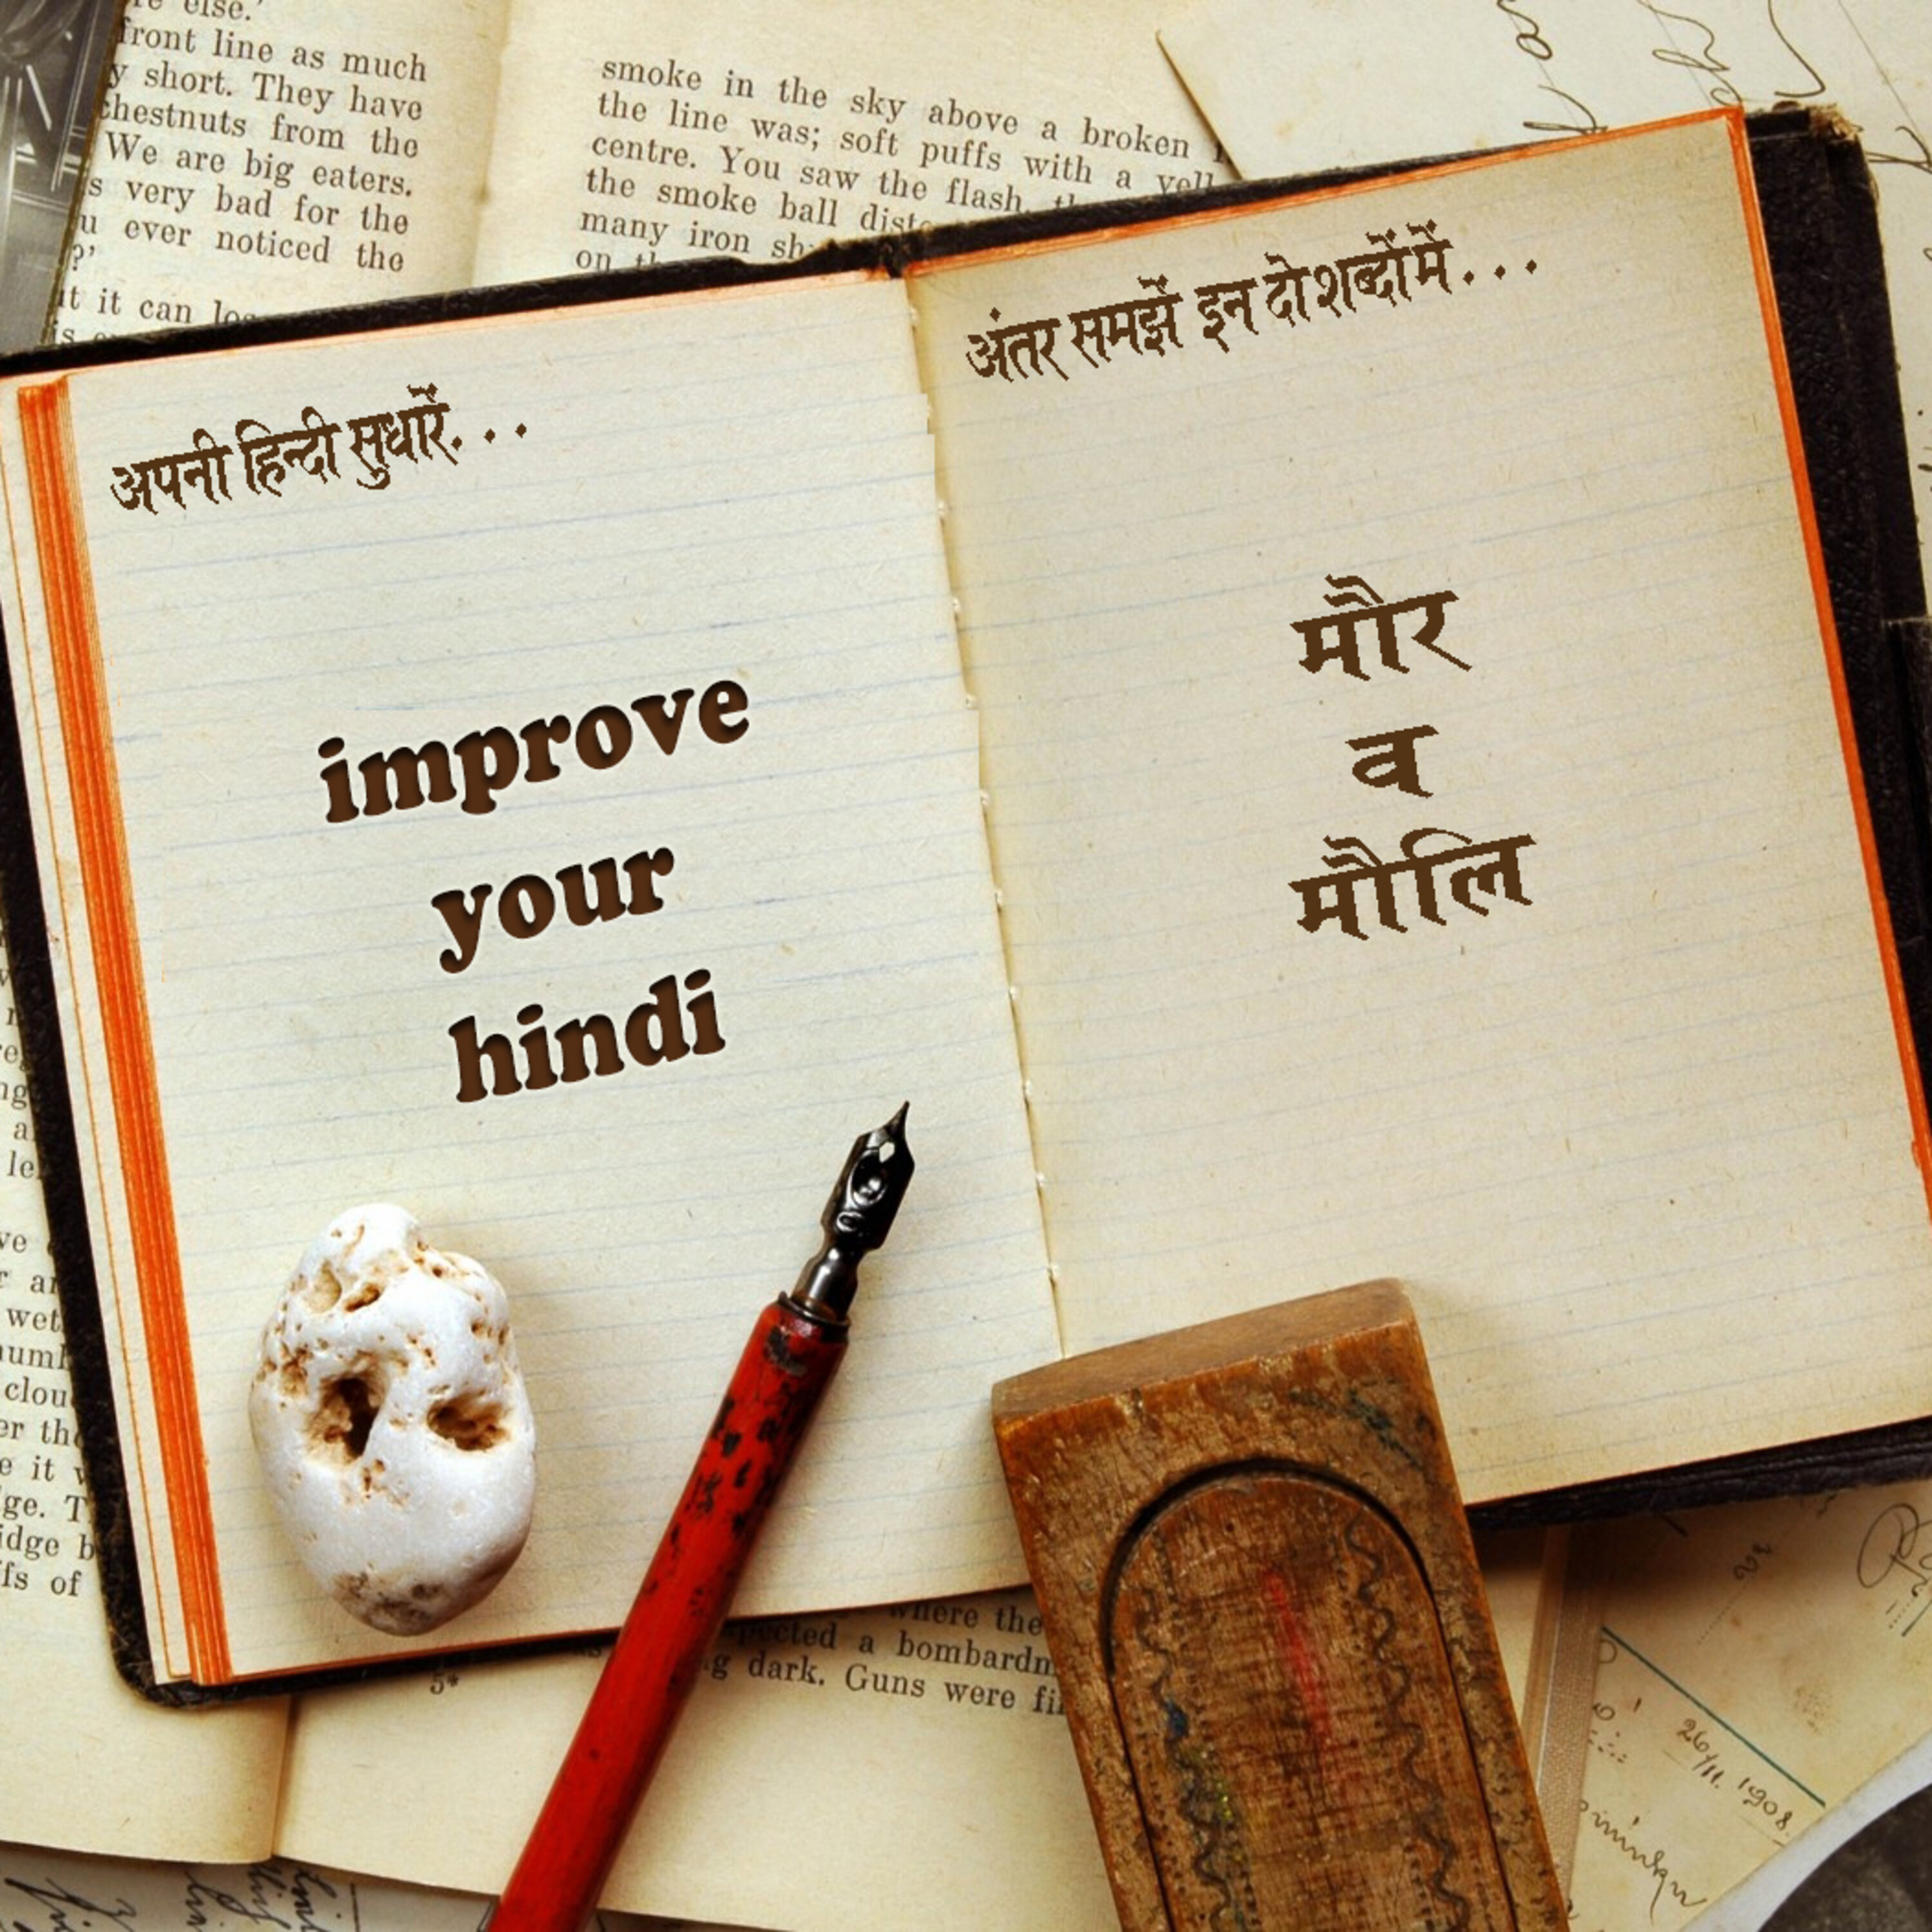 re else.'
front line as much
y short. They have
chestnuts from the
We are big eaters.
s very bad for the
u ever noticed the
?'
it it can
smoke in the sky above a broken
the line was; soft puffs with a
centre. You saw the flash,
the smoke ball
many iron
on
अपनी हिन्दी सुधारें...
improve
your
hindi
अंतर समझें इन दो शब्दों में...
मौर
व
मौलि
where the
a
g dark. Guns were
5*
wet
er the
e it
ge. T
idge b
fs of
26/11. 1908.